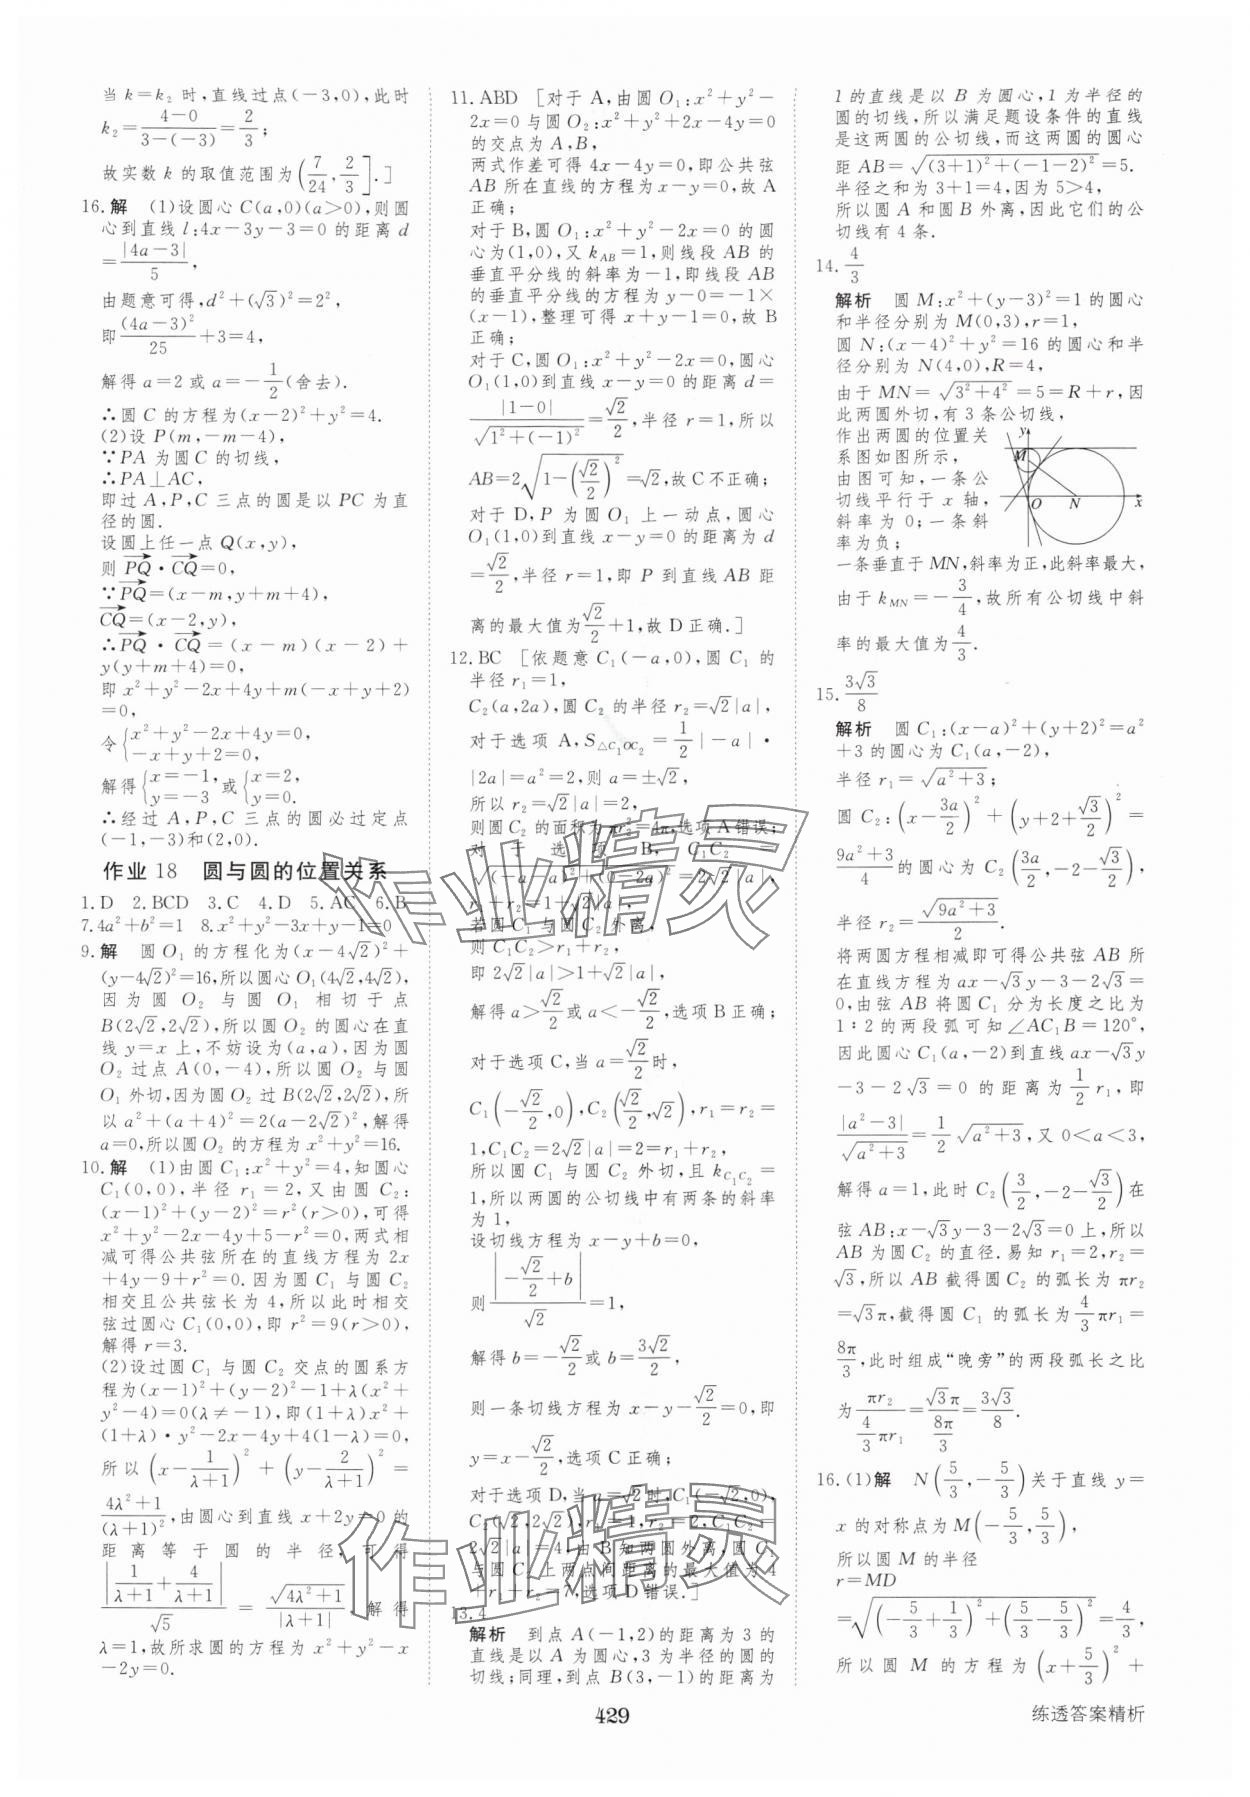 当 k=k₂ 时,直线过点(-3,0),此时
k₂=(4-0)/(3-(-3))=2/3;
故实数 k 的取值范围为(7/24,2/3].]
16.解 (1)设圆心 C(a,0)(a>0),则圆
心到直线 l:4x-3y-3=0 的距离 d
=|4a-3|/5,
由题意可得,d²+(√3)²=2²,
即(4a-3)²/25+3=4,
解得 a=2 或 a=-1/2(舍去).
∴圆 C 的方程为(x-2)²+y²=4.
(2)设 P(m,-m-4),
∵PA 为圆 C 的切线,
∴PA⊥AC,
即过 A,P,C 三点的圆是以 PC 为直
径的圆.
设圆上任一点 Q(x,y),
则 PQ·CQ=0,
∵PQ=(x-m,y+m+4),
CQ=(x-2,y),
∴PQ·CQ=(x-m)(x-2)+
y(y+m+4)=0,
即 x²+y²-2x+4y+m(-x+y+2)
=0,
令{x²+y²-2x+4y=0,
-x+y+2=0,
解得{x=-1, y=-3 或{x=2, y=0.
∴经过 A,P,C 三点的圆必过定点
(-1,-3)和(2,0).
作业 18 圆与圆的位置关系
1.D 2.BCD 3.C 4.D 5.AC 6.B
7.4a²+b²=1 8.x²+y²-3x+y-1=0
9.解 圆 O₁ 的方程化为(x-4√2)²+
(y-4√2)²=16,所以圆心 O₁(4√2,4√2),
因为圆 O₂ 与圆 O₁ 相切于点
B(2√2,2√2),所以圆 O₂ 的圆心在直
线 y=x 上,不妨设为(a,a),因为圆
O₂ 过点 A(0,-4),所以圆 O₂ 与圆
O₁ 外切,因为圆 O₂ 过 B(2√2,2√2),所
以 a²+(a+4)²=2(a-2√2)²,解得
a=0,所以圆 O₂ 的方程为 x²+y²=16.
10.解 (1)由圆 C₁:x²+y²=4,知圆心
C₁(0,0),半径 r₁=2,又由圆 C₂:
(x-1)²+(y-2)²=r²(r>0),可得
x²+y²-2x-4y+5-r²=0,两式相
减可得公共弦所在的直线方程为 2x
+4y-9+r²=0.因为圆 C₁ 与圆 C₂
相交且公共弦长为 4,所以此时相交
弦过圆心 C₁(0,0),即 r²=9(r>0),
解得 r=3.
(2)设过圆 C₁ 与圆 C₂ 交点的圆系方
程为(x-1)²+(y-2)²-1+λ(x²+
y²-4)=0(λ≠-1),即(1+λ)x²+
(1+λ)·y²-2x-4y+4(1-λ)=0,
所以(x-1/(λ+1))²+(y-2/(λ+1))²=
(4λ²+1)/(λ+1)²,由圆心到直线 x+2y=0 的
距离等于圆的半径,可得
|1/(λ+1)+4/(λ+1)|/√5=√(4λ²+1)/|λ+1|,解得
λ=1,故所求圆的方程为 x²+y²-x
-2y=0.
11.ABD [对于 A,由圆 O₁:x²+y²-
2x=0 与圆 O₂:x²+y²+2x-4y=0
的交点为 A,B,
两式作差可得 4x-4y=0,即公共弦
AB 所在直线的方程为 x-y=0,故 A
正确;
对于 B,圆 O₁:x²+y²-2x=0 的圆
心为(1,0),又 kAB=1,则线段 AB 的
垂直平分线的斜率为-1,即线段 AB
的垂直平分线的方程为 y-0=-1×
(x-1),整理可得 x+y-1=0,故 B
正确;
对于 C,圆 O₁:x²+y²-2x=0,圆心
O₁(1,0)到直线 x-y=0 的距离 d=
|1-0|/√(1²+(-1)²)=√2/2,半径 r=1,所以
AB=2√(1-(√2/2)²)=√2,故 C 不正确;
对于 D,P 为圆 O₁ 上一动点,圆心
O₁(1,0)到直线 x-y=0 的距离为 d
=√2/2,半径 r=1,即 P 到直线 AB 距
离的最大值为√2/2+1,故 D 正确.]
12.BC [依题意 C₁(-a,0),圆 C₁ 的
半径 r₁=1,
C₂(a,2a),圆 C₂ 的半径 r₂=√2|a|,
对于选项 A,S△C₁OC₂=1/2|-a|·
|2a|=a²=2,则 a=±√2,
所以 r₂=√2|a|=2,
则圆 C₂ 的面积为 πr₂²=4π,选项 A 错误;
对于选项 B,C₁C₂=
√((-a-a)²+(0-2a)²)=2√2|a|,
r₁+r₂=1+√2|a|,
若圆 C₁ 与圆 C₂ 外离,
则 C₁C₂>r₁+r₂,
即 2√2|a|>1+√2|a|,
解得 a>√2/2或 a<-√2/2,选项 B 正确;
对于选项 C,当 a=√2/2时,
C₁(-√2/2,0),C₂(√2/2,√2),r₁=r₂=
1,C₁C₂=2√2|a|=2=r₁+r₂,
所以圆 C₁ 与圆 C₂ 外切,且 kC₁C₂=
1,所以两圆的公切线中有两条的斜率
为 1,
设切线方程为 x-y+b=0,
则|-√2/2+b|/√2=1,
解得 b=-√2/2或 b=3√2/2,
则一条切线方程为 x-y-√2/2=0,即
y=x-√2/2,选项 C 正确;
对于选项 D,当 a=√2时,C₁(-√2,0),
C₂(√2,2√2),r₁=1,r₂=2,C₁C₂=
2√2|a|=4,由 B 知两圆外离,圆 C₁
与圆 C₂ 上两点间距离的最大值为 4
+r₁+r₂=7,选项 D 错误.]
13.4
解析 到点 A(-1,2)的距离为 3 的
直线是以 A 为圆心,3 为半径的圆的
切线;同理,到点 B(3,-1)的距离为
1 的直线是以 B 为圆心,1 为半径的
圆的切线,所以满足题设条件的直线
是这两圆的公切线,而这两圆的圆心
距 AB=√((3+1)²+(-1-2)²)=5.
半径之和为 3+1=4,因为 5>4,
所以圆 A 和圆 B 外离,因此它们的公
切线有 4 条.
14.4/3
解析 圆 M:x²+(y-3)²=1 的圆心
和半径分别为 M(0,3),r=1,
圆 N:(x-4)²+y²=16 的圆心和半
径分别为 N(4,0),R=4,
由于 MN=√(3²+4²)=5=R+r,因
此两圆外切,有 3 条公切线,
作出两圆的位置关
系图如图所示,
由图可知,一条公
切线平行于 x 轴,
斜率为 0;一条斜
率为负;
y
M
O
N
x
一条垂直于 MN,斜率为正,此斜率最大,
由于 kMN=-3/4,故所有公切线中斜
率的最大值为4/3.
15.3√3/8
解析 圆 C₁:(x-a)²+(y+2)²=a²
+3 的圆心为 C₁(a,-2),
半径 r₁=√(a²+3);
圆 C₂:(x-3a/2)²+(y+2+√3/2)²=
(9a²+3)/4的圆心为 C₂(3a/2,-2-√3/2),
半径 r₂=√(9a²+3)/2.
将两圆方程相减即可得公共弦 AB 所
在直线方程为 ax-√3y-3-2√3=
0,由弦 AB 将圆 C₁ 分为长度之比为
1∶2 的两段弧可知∠AC₁B=120°,
因此圆心 C₁(a,-2)到直线 ax-√3y
-3-2√3=0 的距离为1/2r₁,即
|a²-3|/√(a²+3)=1/2√(a²+3),又 0<a<3,
解得 a=1,此时 C₂(3/2,-2-√3/2)在
弦 AB:x-√3y-3-2√3=0 上,所以
AB 为圆 C₂ 的直径.易知 r₁=2,r₂=
√3,所以 AB 截得圆 C₂ 的弧长为 πr₂
=√3π,截得圆 C₁ 的弧长为4/3πr₁=
8π/3,此时组成“晚旁”的两段弧长之比
为πr₂/(4/3πr₁)=√3π/(8π/3)=3√3/8.
16.(1)解 N(5/3,-5/3)关于直线 y=
x 的对称点为 M(-5/3,5/3),
所以圆 M 的半径
r=MD
=√((-5/3+1/3)²+(5/3-5/3)²)=4/3,
所以圆 M 的方程为(x+5/3)²+
429
练透答案精析
作业精灵
作业精灵